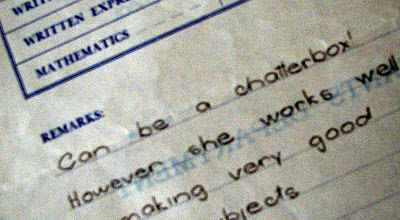 WRITTEN
MATHEMATICS
REMARKS:
Can be a chatterbox!
However she works well
making very good